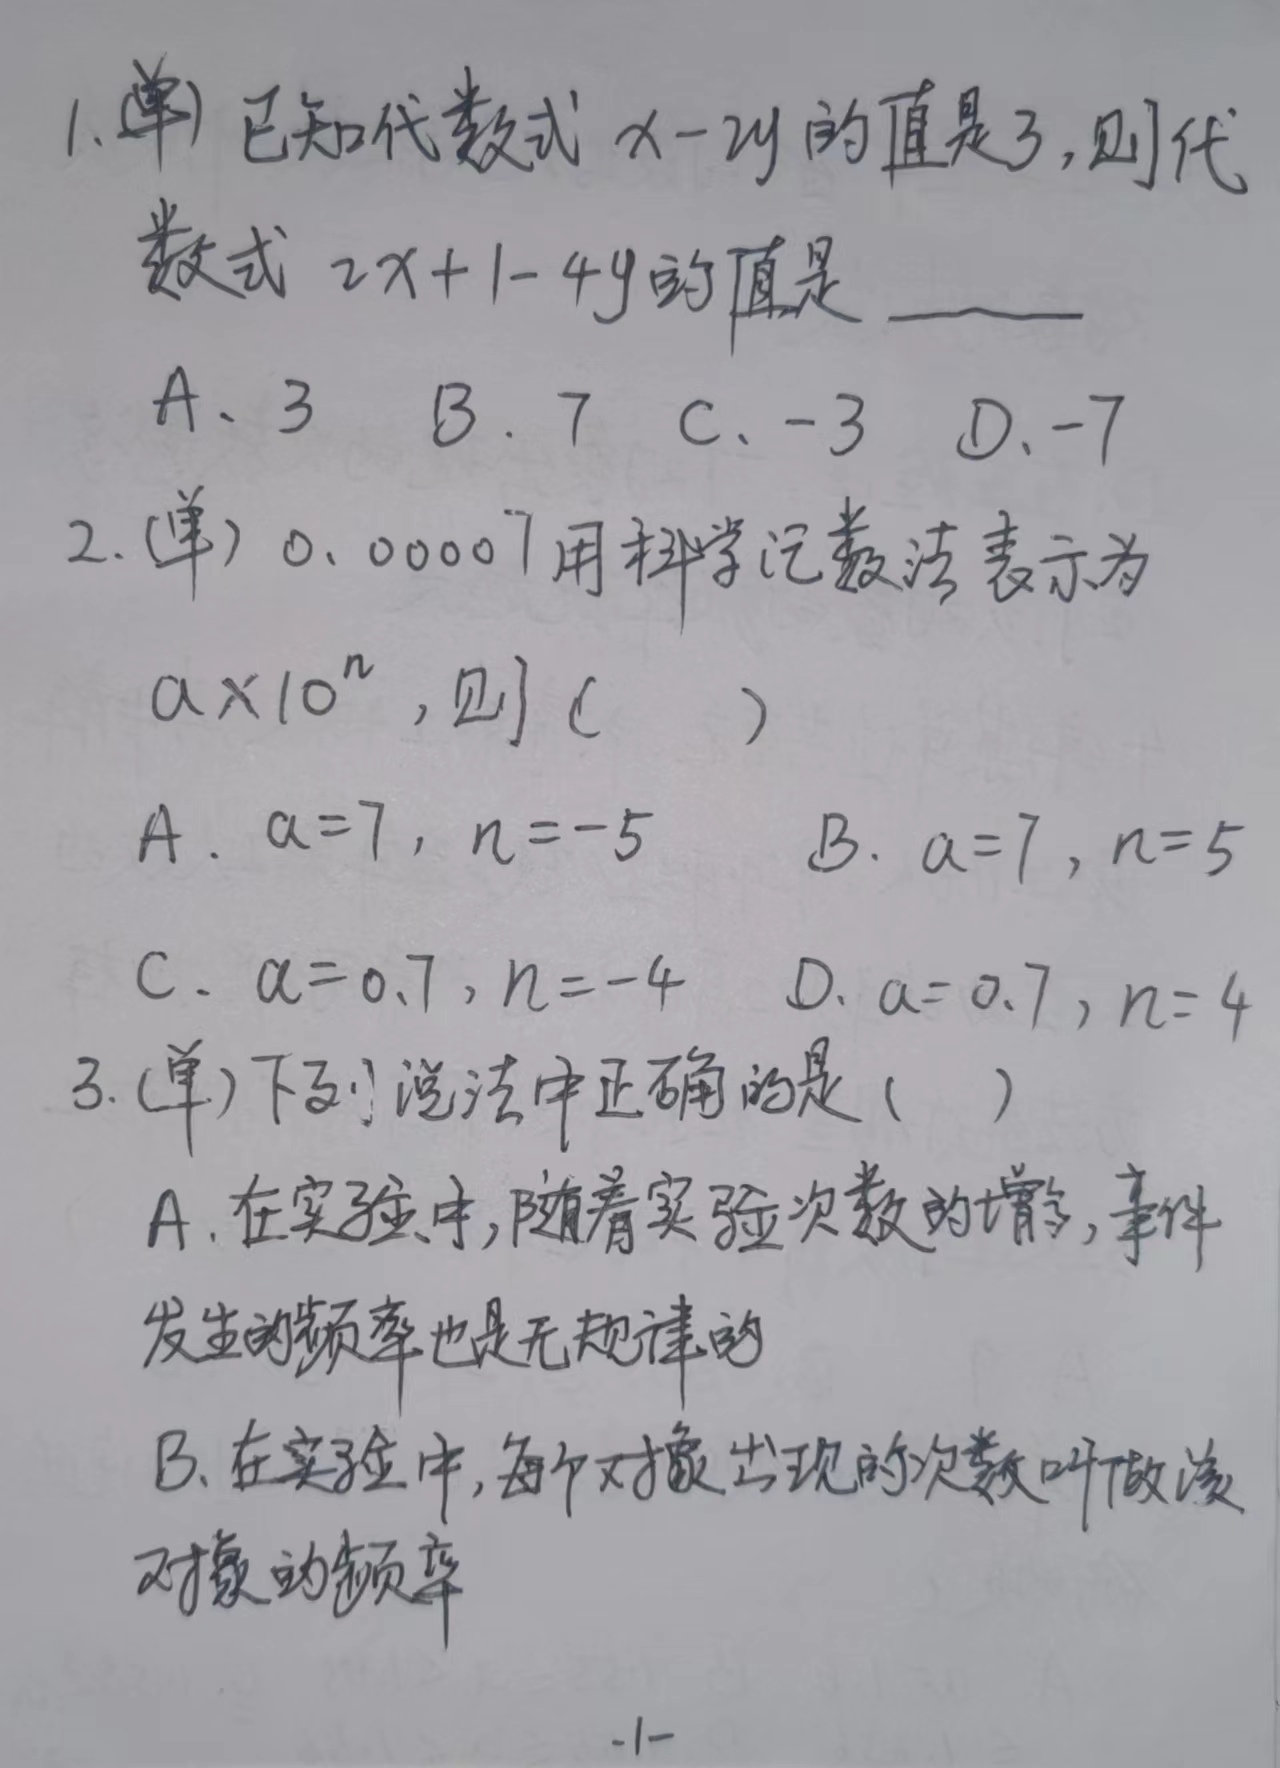 1.(单)已知代数式 x-2y的值是3,则代
数式 2x+1-4y的值是 ____
A、3 B.7 C、-3 D、-7
2.(单)0.00007用科学记数法表示为
a×10ⁿ,则( )
A. a=7, n=-5 B. a=7, n=5
C. a=0.7, n=-4 D. a=0.7, n=4
3.(单)下列说法中正确的是( )
A.在实验中,随着实验次数的增多,事件
发生的频率也是无规律的
B、在实验中,每个对象出现的次数叫做该
对象的频率
-1-